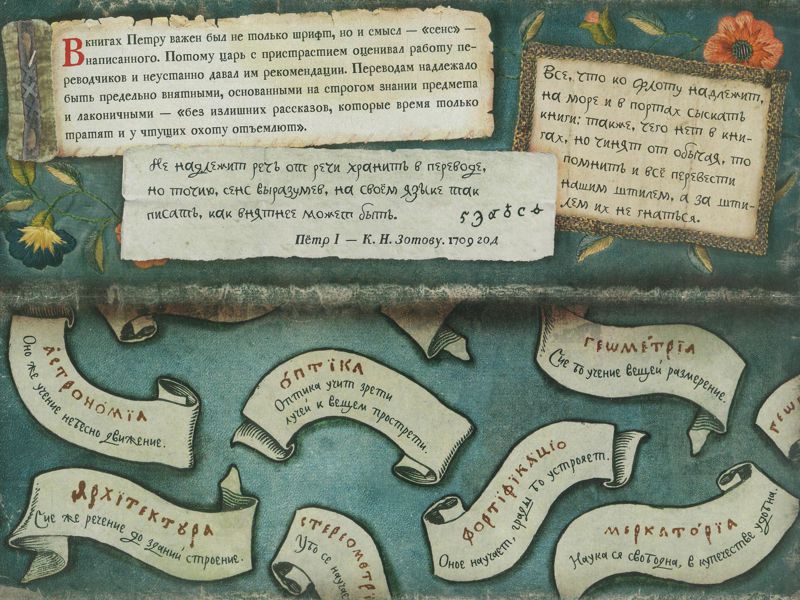 В книгах Петру важен был не только шрифт, но и смысл — «сенс» —
написанного. Потому царь с пристрастием оценивал работу пе-
реводчиков и неустанно давал им рекомендации. Переводам надлежало
быть предельно внятными, основанными на строгом знании предмета
и лаконичными — «без излишних рассказов, которые время только
тратят и у чтущих охоту отъемлют».
Не надлежит речь от речи хранить в переводе,
но точию, сенс выразумев, на своём языке так
писать, как внятнее может быть.
Пётр I — К. Н. Зотову. 1709 год
Всё, что ко флоту надлежит,
на море и в портах сыскать
книги; также, чего нет в кни-
гах, но чинят от обычая, то
помнить и всё перевести
нашим штилем, а за шти-
лем их не гнаться.
астрономїа
Оно же учение небесно движение.
оптїка
Оптика учит зрети
лучей к вещем прострети.
геѡметрїа
Сие то учение вещей размерение.
архїтектура
Сие же речение до зданий строение.
стереометрї
Убо се научае
фортїфїкацїо
Оное научает, грады то устрояет.
меркаторїа
Наука ся свободна, в купечестве удобна.
геѡ